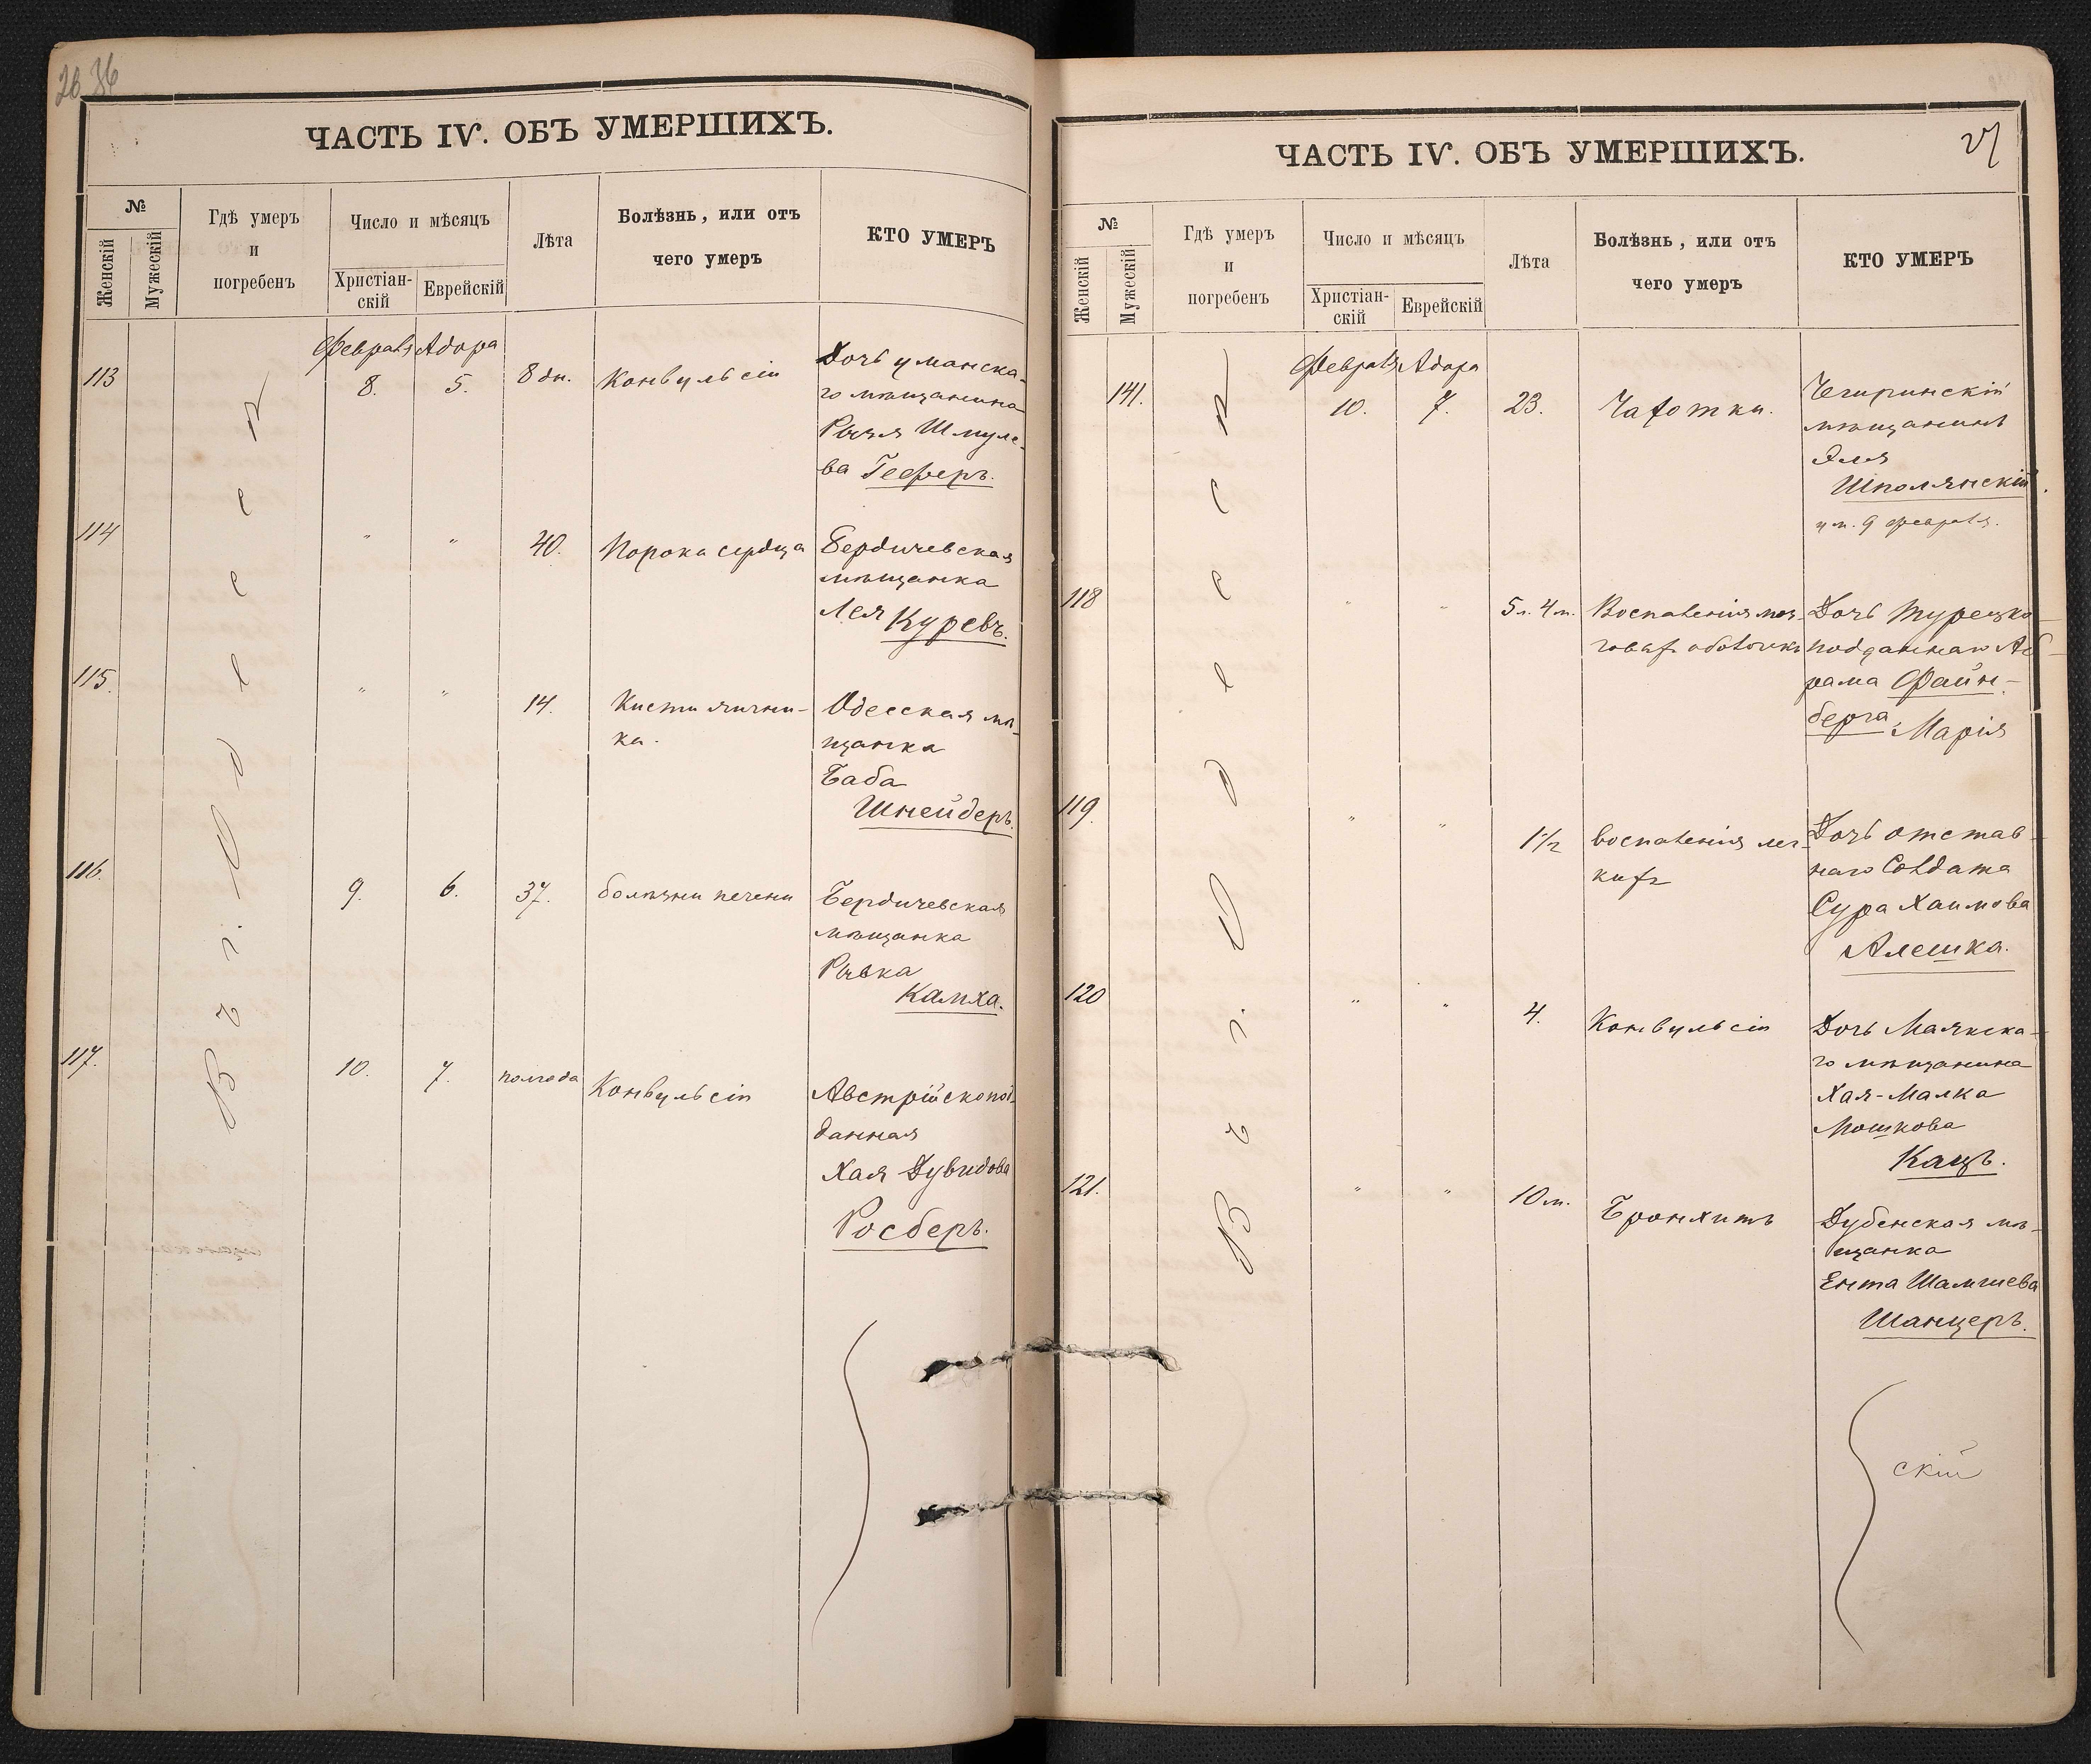 26 36
ЧАСТЬ IV. ОБЪ УМЕРШИХЪ.
№
Женскій
Мужескій
Гдѣ умеръ
и
погребенъ
Число и мѣсяцъ
Христіан-
скій
Еврейскій
Лѣта
Болѣзнь, или отъ
чего умеръ
КТО УМЕРЪ
Въ г. Одессѣ
Февраля Адора
113
8.
5.
8 дн.
Конвульсіи
Дочь уманска-
го мѣщанина
Рыся Шмуле-
ва Гесферъ.
114
"
"
40.
Порока сердца
Бердичевская
мѣщанка
Лея Куревъ.
115.
"
"
14.
Кисти яични-
ка.
Одесская мѣ-
щанка
Баба
Шнейдеръ.
116.
9.
6.
37.
болѣзни печени
Бердичевская
мѣщанка
Рывка
Камха.
117.
10.
7.
полгода
Конвульсіи
Австрійскопод-
данная
Хая Дувидова
Росберъ.
27
ЧАСТЬ IV. ОБЪ УМЕРШИХЪ.
№
Женскій
Мужескій
Гдѣ умеръ
и
погребенъ
Число и мѣсяцъ
Христіан-
скій
Еврейскій
Лѣта
Болѣзнь, или отъ
чего умеръ
КТО УМЕРЪ
Въ г. Одессѣ
Февраля Адора
141.
10.
7.
23.
Чахотки.
Чегиринскій
мѣщанинъ
Эля
Шполянскій.
ум. 9 февраля.
118
"
"
5 л. 4 м.
Воспаленія моз-
говых оболочкъ
Дочь турецко-
подданнаго Аб-
рама Файн-
берга, Марія
119.
"
"
1 1/2
воспаленія лег-
кихъ
Дочь отстав-
наго Солдата
Сура Хаимова
Алешка.
120
"
"
4.
Конвульсіи
Дочь Маякска-
го мѣщанина
Хая-Малка
Мошкова
Кацъ.
121.
"
"
10 м.
Бронхитъ
Дубенская мѣ-
щанка
Ента Шамшева
Шанцеръ.
скій